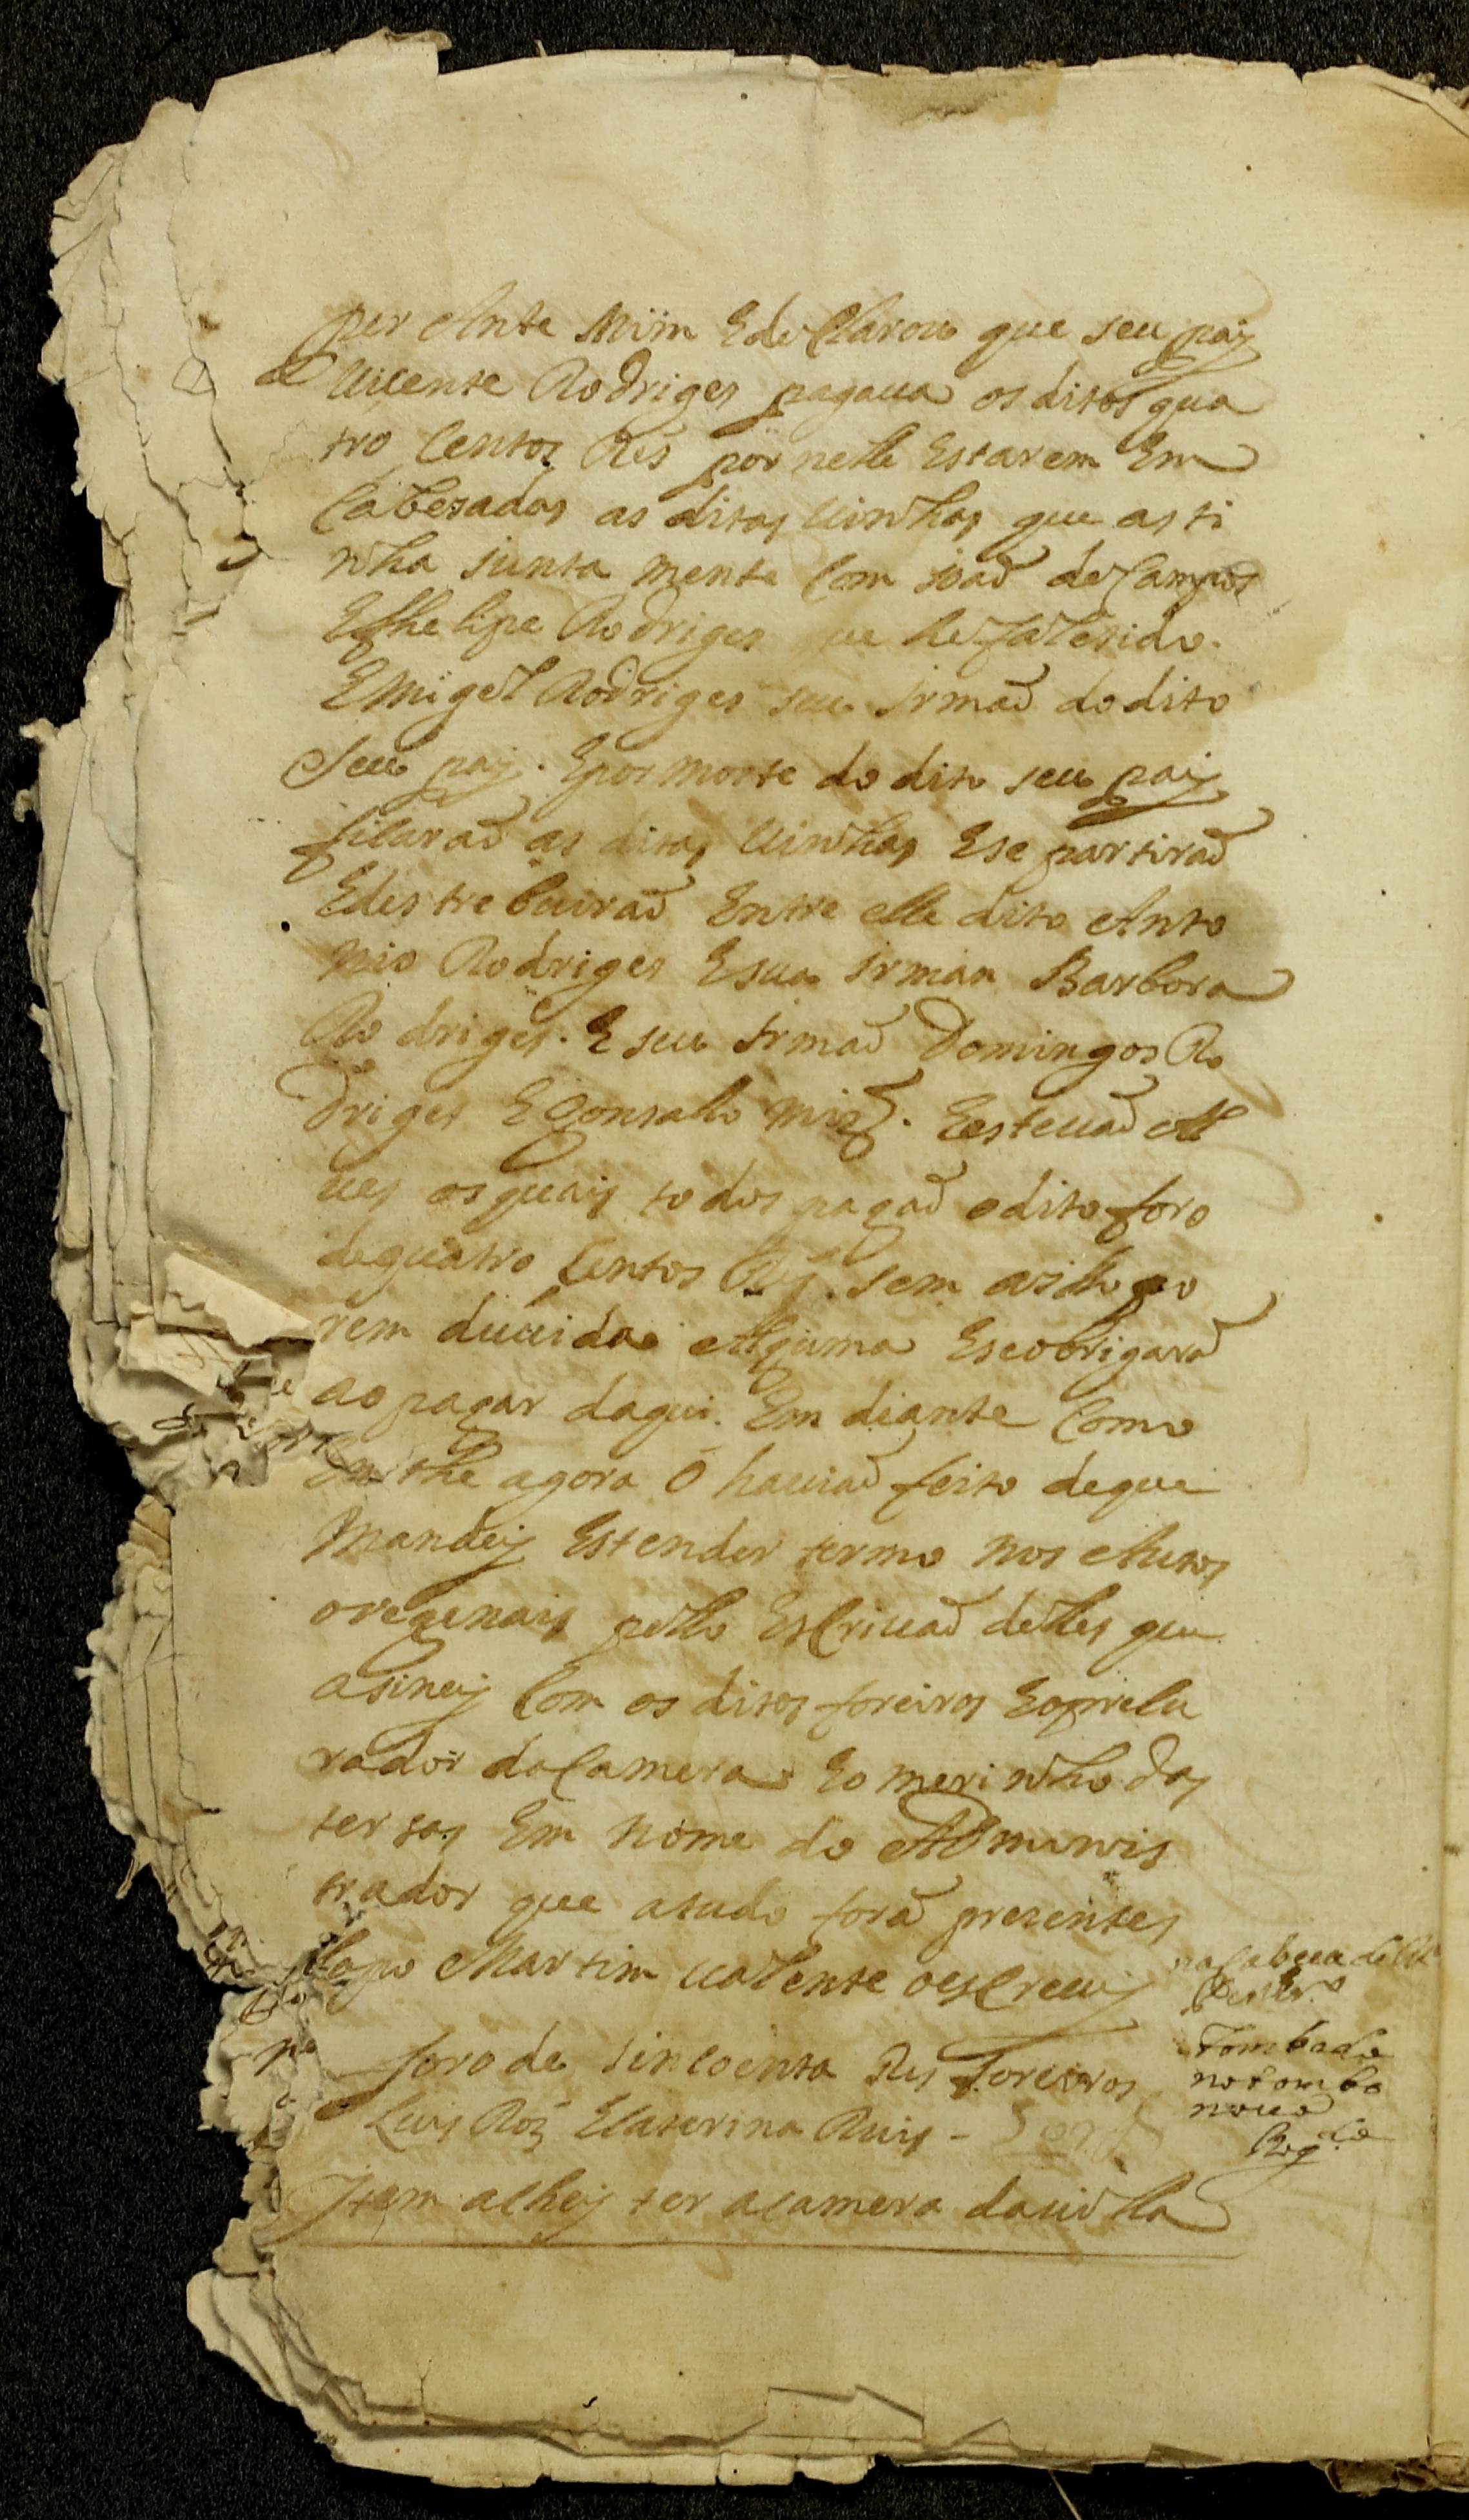 per Ante Mim Edeclarou que seu paj
Vicente Rodriges pagaua os ditos qua
tro Centos Rés por nelle Estarem Em
Cabesadas as ditas uinhas que as ti
nha junta mente Com joaõ de Campos
Ephelipe Rodriges que he falesido.
EMigel Rodriges seu Irmaõ do dito
Seu paj. Epor morte do dito seu paj
ficaraõ as ditas uinhas Ese partiraõ
Edestrebuiraõ Entre elle dito Anto
nio Rodriges Esua Irmãn Barbora
Ro driges. E seu Irmaõ Domingos Ro
driges E Gonsallo Miz. Eesteuaõ Al
ues os quais todos pagaõ o dito foro
de quatro Centos Rs. sem a illo po
rem duuida Alguma Eseobrigaraõ
ao pagar daqui Em diante Como
the agora O hauiaõ feito de que
Mandej Estender termo nos Autos
oregenais pello Escriuaõ delles que
asinej Com os ditos foreiros Eoprocu
rador da Camera Eo merinho das
tersas Em nome do Adminis
trador que atudo foraõ prezentes
Martim ualente oescreuj
foro de sincoenta Res Foreiros
Luis Roiz ECaterina Ruis -
Item achej ter a camera da uilla
na cabeça de
Tombado
no tombo
nouo
Reg.do